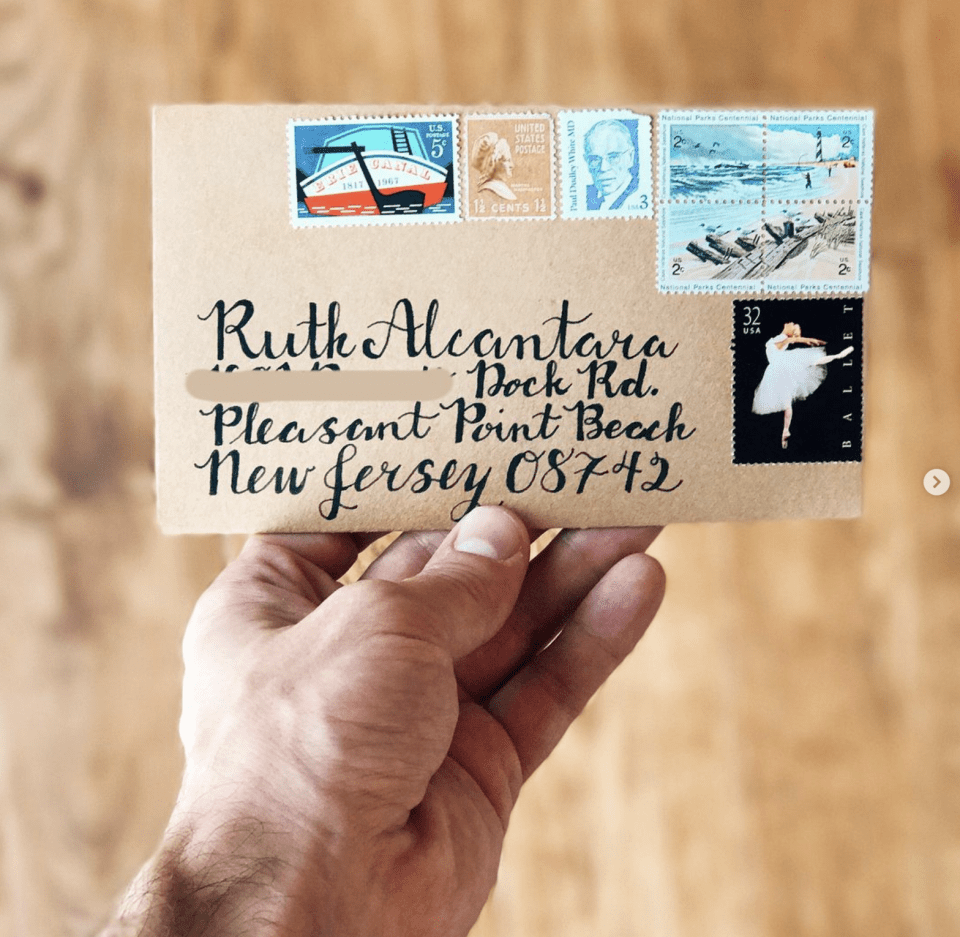 U.S. POSTAGE 5¢
ERIE CANAL
1817 1967
UNITED STATES POSTAGE
1½ CENTS 1½
Paul Dudley White MD
USA 3
National Parks Centennial
National Parks Centennial
U.S. 2¢
U.S. 2¢
U.S. 2¢
U.S. 2¢
National Parks Centennial
National Parks Centennial
32 USA
BALLET
Ruth Alcantara
Dock Rd.
Pleasant Point Beach
New Jersey 08742